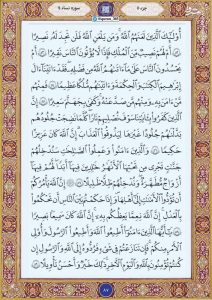 جزء ۵
سوره نساء ۴
أُو۟لَٰٓئِكَ ٱلَّذِينَ لَعَنَهُمُ ٱللَّهُ وَمَن يَلْعَنِ ٱللَّهُ فَلَن تَجِدَ لَهُۥ نَصِيرًا
أَمْ لَهُمْ نَصِيبٌ مِّنَ ٱلْمُلْكِ فَإِذًا لَّا يُؤْتُونَ ٱلنَّاسَ نَقِيرًا أَمْ
يَحْسُدُونَ ٱلنَّاسَ عَلَىٰ مَآ ءَاتَىٰهُمُ ٱللَّهُ مِن فَضْلِهِۦ فَقَدْ ءَاتَيْنَآ ءَالَ
إِبْرَٰهِيمَ ٱلْكِتَٰبَ وَٱلْحِكْمَةَ وَءَاتَيْنَٰهُم مُّلْكًا عَظِيمًا
فَمِنْهُم مَّنْ ءَامَنَ بِهِۦ وَمِنْهُم مَّن صَدَّ عَنْهُ وَكَفَىٰ بِجَهَنَّمَ سَعِيرًا إِنَّ
ٱلَّذِينَ كَفَرُوا۟ بِـَٔايَٰتِنَا سَوْفَ نُصْلِيهِمْ نَارًا كُلَّمَا نَضِجَتْ جُلُودُهُم
بَدَّلْنَٰهُمْ جُلُودًا غَيْرَهَا لِيَذُوقُوا۟ ٱلْعَذَابَ إِنَّ ٱللَّهَ كَانَ عَزِيزًا
حَكِيمًا وَٱلَّذِينَ ءَامَنُوا۟ وَعَمِلُوا۟ ٱلصَّٰلِحَٰتِ سَنُدْخِلُهُمْ
جَنَّٰتٍ تَجْرِى مِن تَحْتِهَا ٱلْأَنْهَٰرُ خَٰلِدِينَ فِيهَآ أَبَدًا لَّهُمْ فِيهَآ
أَزْوَٰجٌ مُّطَهَّرَةٌ وَنُدْخِلُهُمْ ظِلًّا ظَلِيلًا إِنَّ ٱللَّهَ يَأْمُرُكُمْ
أَن تُؤَدُّوا۟ ٱلْأَمَٰنَٰتِ إِلَىٰٓ أَهْلِهَا وَإِذَا حَكَمْتُم بَيْنَ ٱلنَّاسِ أَن تَحْكُمُوا۟
بِٱلْعَدْلِ إِنَّ ٱللَّهَ نِعِمَّا يَعِظُكُم بِهِۦٓ إِنَّ ٱللَّهَ كَانَ سَمِيعًۢا بَصِيرًا
يَٰٓأَيُّهَا ٱلَّذِينَ ءَامَنُوٓا۟ أَطِيعُوا۟ ٱللَّهَ وَأَطِيعُوا۟ ٱلرَّسُولَ وَأُو۟لِى
ٱلْأَمْرِ مِنكُمْ فَإِن تَنَٰزَعْتُمْ فِى شَىْءٍ فَرُدُّوهُ إِلَى ٱللَّهِ وَٱلرَّسُولِ إِن
كُنتُمْ تُؤْمِنُونَ بِٱللَّهِ وَٱلْيَوْمِ ٱلْـَٔاخِرِ ذَٰلِكَ خَيْرٌ وَأَحْسَنُ تَأْوِيلًا
۸۷